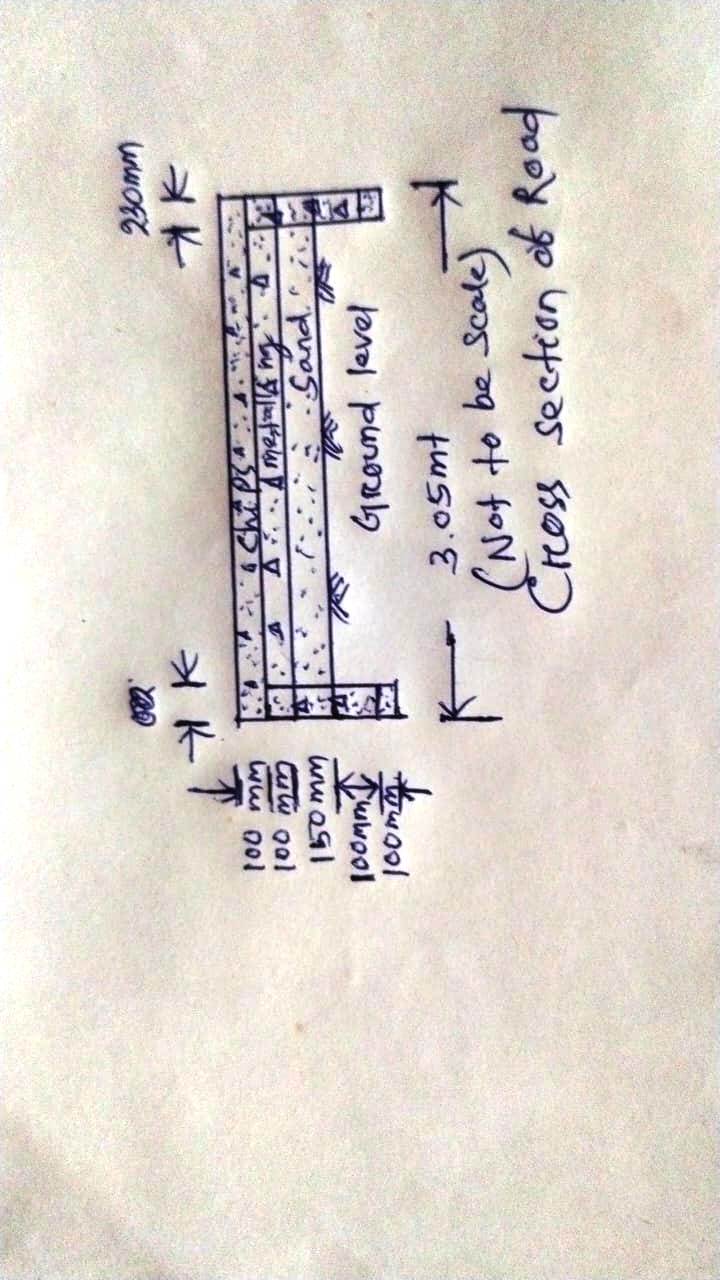 230mm
Chips
metalling
Sand
Ground level
100 mm
100 mm
150 mm
100mm
100mm
3.05mt
(Not to be scale)
Cross section of Road